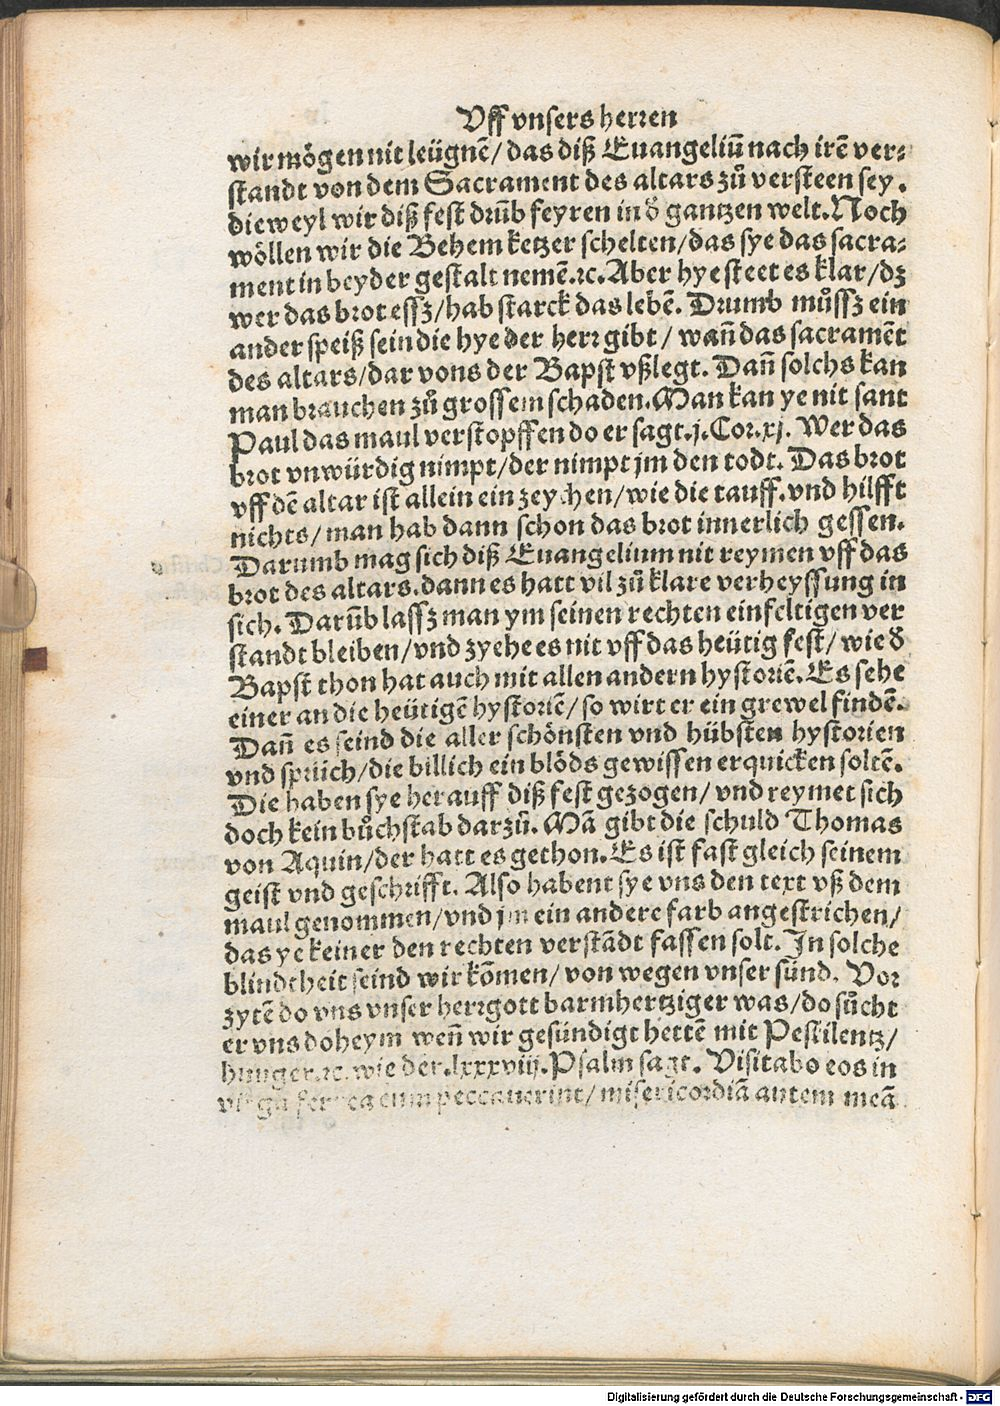 Vff vnsers herren
wir mögen nit leügnē/ das diß Euangeliū nach irē ver⸗
standt von dem Sacrament des altars zů versteen sey.
dieweyl wir diß fest drūb feyren in d̕ gantzen welt. Noch
wöllen wir die Behem ketzer schelten/ das sye das sacra⸗
ment in beyder gestalt nemē. ꝛc. Aber hye steet es klar/ dz
wer das brot essz/ hab starck das lebē. Drumb můssz ein
ander speiß sein die hye der herr gibt/ wañ das sacramēt
des altars/ dar vons der Bapst vßlegt. Dañ solchs kan
man brauchen zů grossem schaden. Man kan ye nit sant
Paul das maul verstopffen do er sagt. j. Cor. xj. Wer das
brot vnwürdig nimpt/ der nimpt jm den todt. Das brot
vff dē altar ist allein ein zeychen/ wie die tauff. vnd hilfft
nichts/ man hab dann schon das brot innerlich gessen.
Darumb mag sich diß Euangelium nit reymen vff das
brot des altars. dann es hatt vil zů klare verheyssung in
sich. Darūb lassz man ym seinen rechten einfeltigen ver
standt bleiben/ vnd zyehe es nit vff das heütig fest/ wie d̕
Bapst thon hat auch mit allen andern hystoriē. Es sehe
einer an die heütigē hystoriē/ so wirt er ein grewel findē.
Dañ es seind die aller schönsten vnd hübsten hystorien
vnd sprüch/ die billich ein blöds gewissen erquicken soltē.
Die haben sye herauff diß fest gezogen/ vnd reymet sich
doch kein bůchstab darzů. Mā gibt die schuld Thomas
von Aquin/ der hatt es gethon. Es ist fast gleich seinem
geist vnd geschrifft. Also habent sye vns den text vß dem
maul genommen/ vnd jm ein andere farb angestrichen/
das ye keiner den rechten verstādt fassen solt. In solche
blindtheit seind wir kōmen/ von wegen vnser sünd. Vor
zytē do vns vnser herrgott barmhertziger was/ do sůcht
er vns doheym weñ wir gesündigt hettē mit Pestilentz/
hunger. ꝛc. wie der. lxxxviij. Psalm sagt. Visitabo eos in
virga ferrea cum peccauerint/ misericordiā autem meā
Digitalisierung gefördert durch die Deutsche Forschungsgemeinschaft - DFG